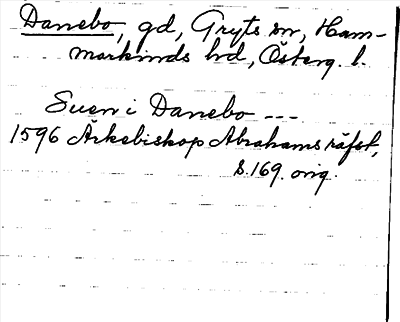 Danebo, gd, Gryts sn, Ham-
markinds hd, Österg. l.
Suen i Danebo ---
1596 Ärkebiskop Abrahams räfst,
s. 169. orig.